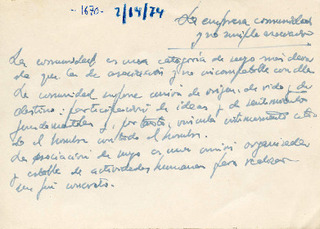 -1670- 2/14/74
La empresa comunidad
y no simple asociación
La comunidad es una categoría de suyo más densa
que la de asociación y no incompatible con ella.
La comunidad supone unión de origen, de vida, de
destino: participación de ideas y de sentimientos
fundamentales y, por tanto, vincula íntimamente
el hombre con todo el hombre.
La asociación de suyo es una unión organizada
y estable de actividades humanas para realizar
un fin concreto.